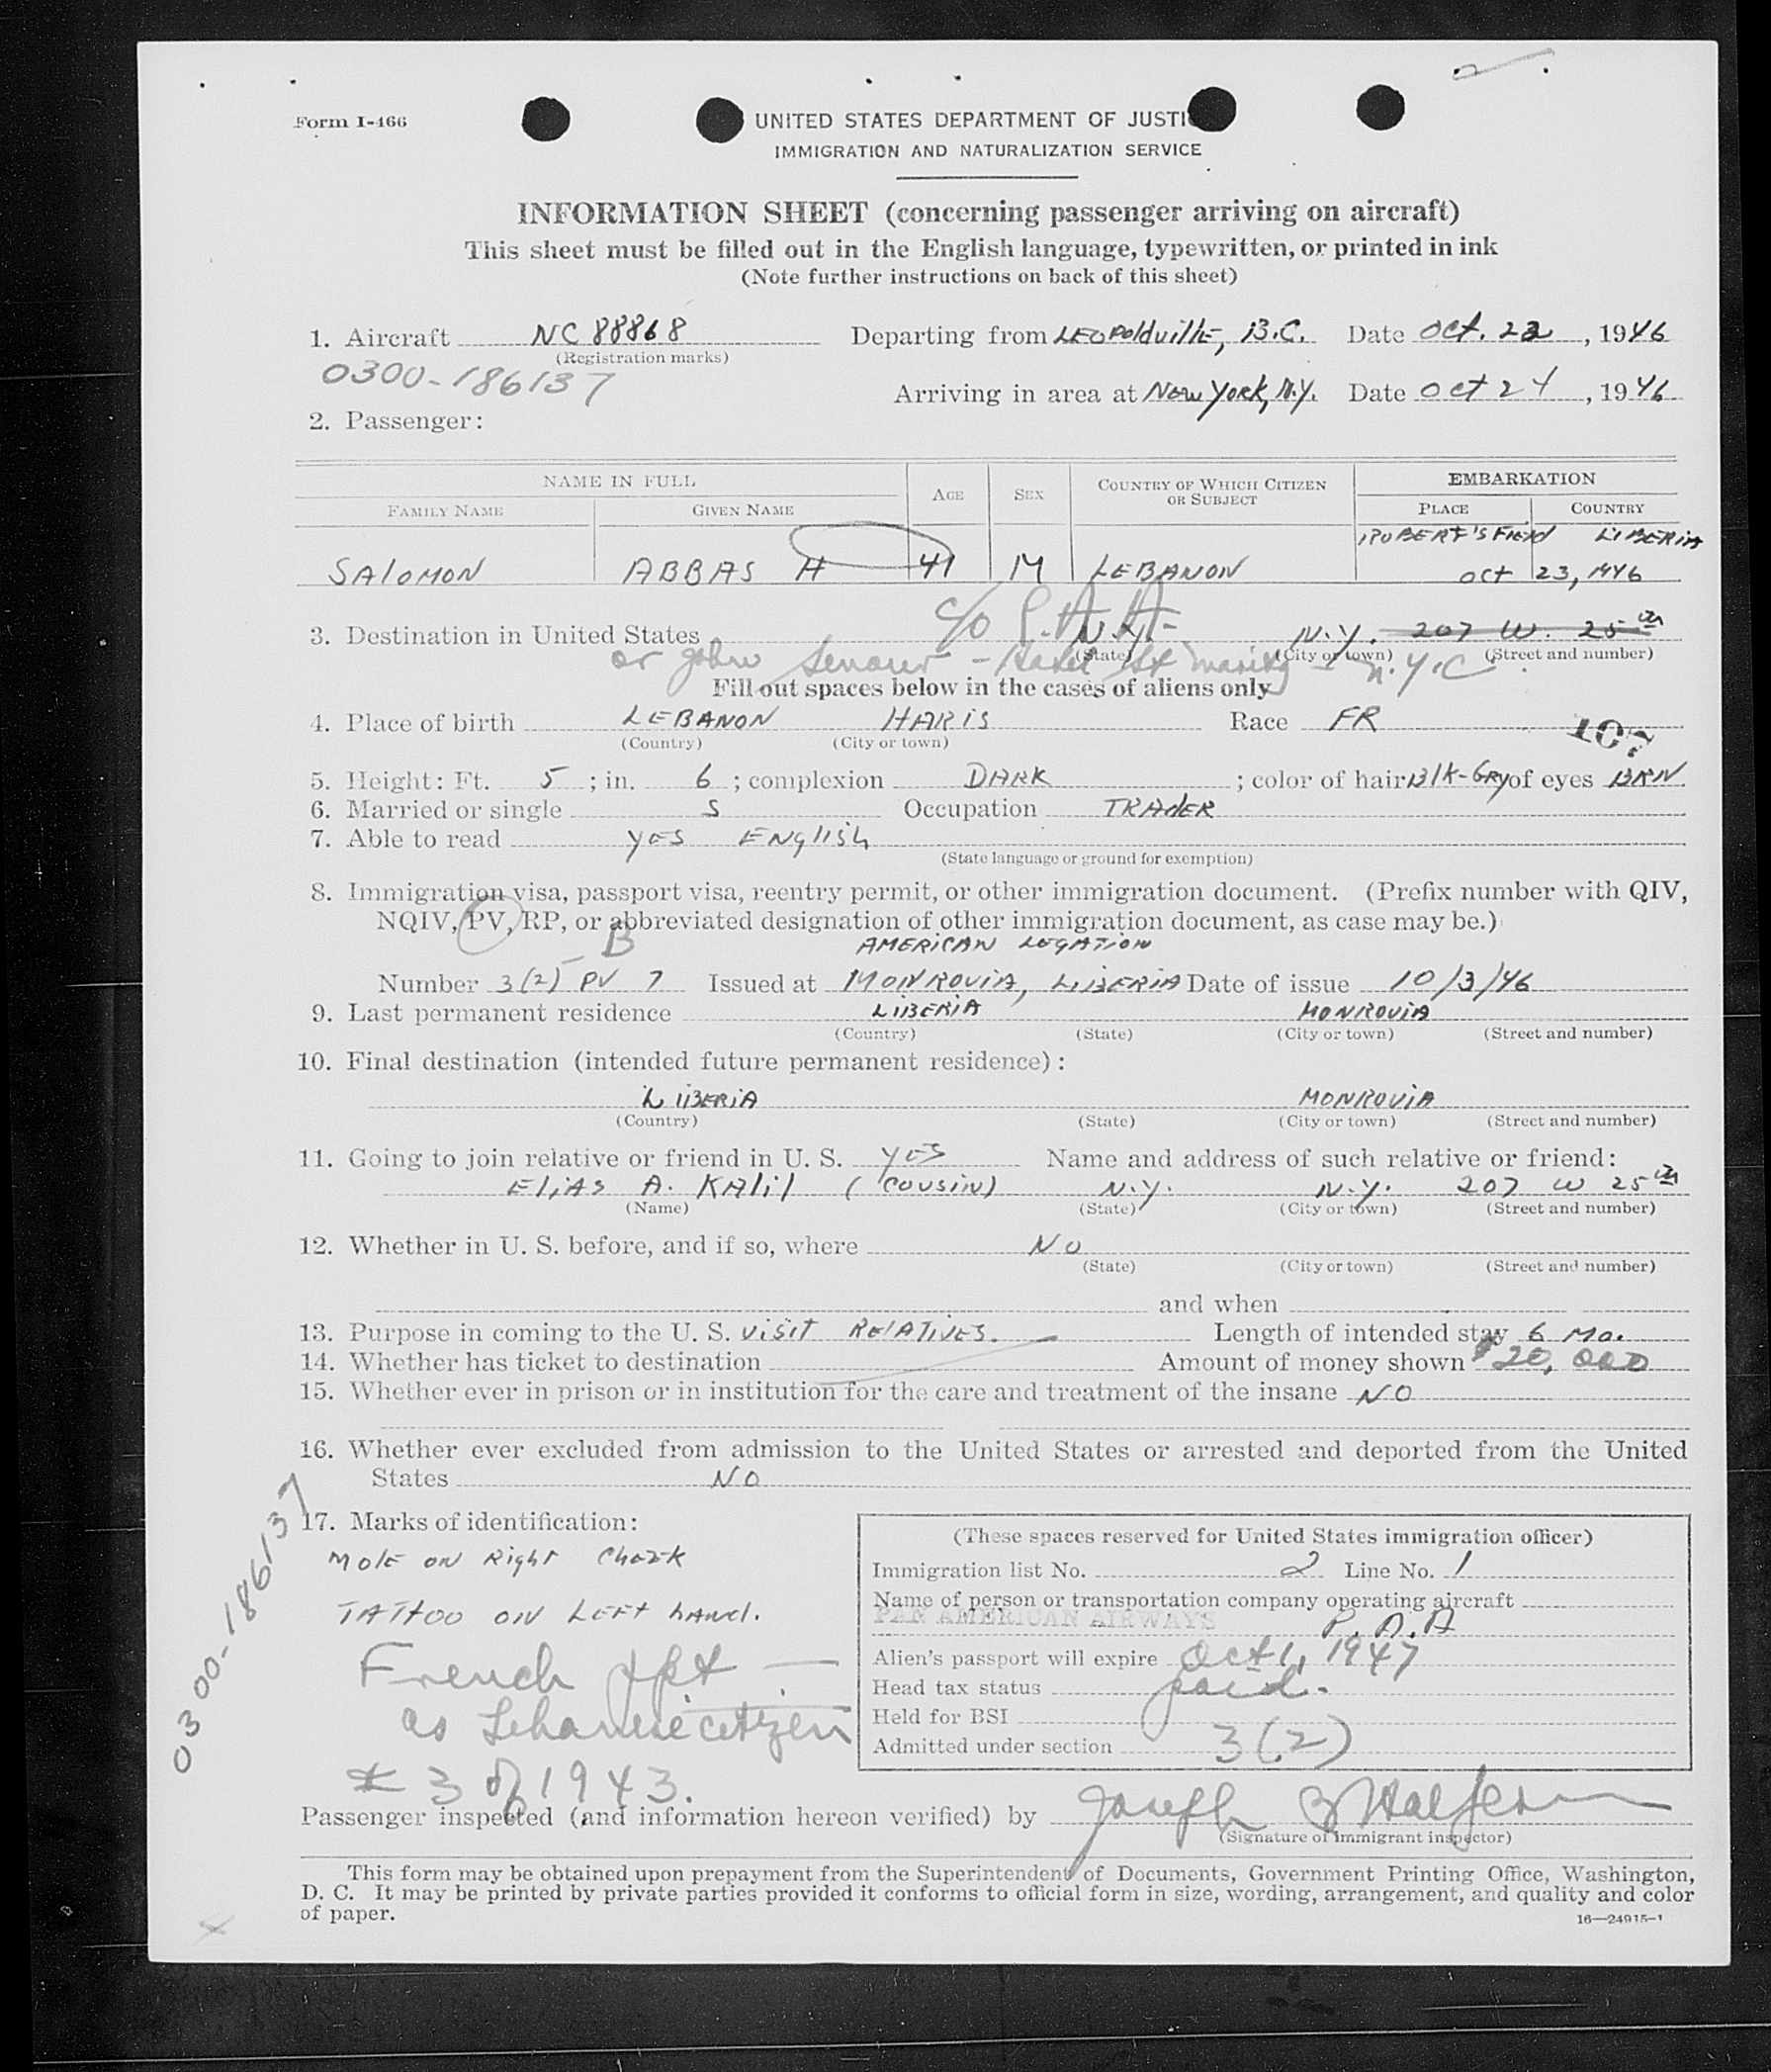 Form I-466
UNITED STATES DEPARTMENT OF JUSTI
IMMIGRATION AND NATURALIZATION SERVICE
INFORMATION SHEET (concerning passenger arriving on aircraft)
This sheet must be filled out in the English language, typewritten, or printed in ink
(Note further instructions on back of this sheet)
1. Aircraft NC 88868 Departing from LEOPoldvillE, B.C. Date Oct. 22, 1946
(Registration marks)
0300-186137
Arriving in area at New York, N.Y. Date Oct 24, 1946
2. Passenger:
NAME IN FULL AGE SEX COUNTRY OF WHICH CITIZEN OR SUBJECT EMBARKATION
FAMILY NAME GIVEN NAME PLACE COUNTRY
ROBERT'S FIElD LIBERIA
SAlOMON ABBAS H 41 M LEBANON Oct 23, 1946
3. Destination in United States c/o P.A.A. N.Y. N.Y. 207 W. 25th
(State) (City or town) (Street and number)
or John - Hotel St Moritz - N.Y.C.
Fill out spaces below in the cases of aliens only
4. Place of birth LEBANON HARIS Race FR
(Country) (City or town)
107
5. Height: Ft. 5; in. 6; complexion DARK; color of hair Blk-Gry of eyes BRN
6. Married or single S Occupation TRAdER
7. Able to read YES ENglish
(State language or ground for exemption)
8. Immigration visa, passport visa, reentry permit, or other immigration document. (Prefix number with QIV,
NQIV, PV, RP, or abbreviated designation of other immigration document, as case may be.)
B AMERICAN LEGATION
Number 3(2) PV 7 Issued at MONROVIA, LIBERIA Date of issue 10/3/46
9. Last permanent residence LIBERIA MONROVIA
(Country) (State) (City or town) (Street and number)
10. Final destination (intended future permanent residence):
LIBERIA MONROVIA
(Country) (State) (City or town) (Street and number)
11. Going to join relative or friend in U. S. YES Name and address of such relative or friend:
EliAS A. KAlil (COUSIN) N.Y. N.Y. 207 W 25th
(Name) (State) (City or town) (Street and number)
12. Whether in U. S. before, and if so, where No
(State) (City or town) (Street and number)
and when
13. Purpose in coming to the U. S. visit RElATIVES. Length of intended stay 6 Mo.
14. Whether has ticket to destination Amount of money shown $20,000
15. Whether ever in prison or in institution for the care and treatment of the insane NO
16. Whether ever excluded from admission to the United States or arrested and deported from the United
States NO
17. Marks of identification:
MolE ON Right ChEEK
TATTOO ON LEFt hANd.
French ppt —
as Lebanese citizen
* 3 of 1943.
0300-186137
(These spaces reserved for United States immigration officer)
Immigration list No. 2 Line No. 1
Name of person or transportation company operating aircraft
PAN AMERICAN AIRWAYS P.A.A
Alien's passport will expire Oct 1, 1947
Head tax status paid.
Held for BSI
Admitted under section 3(2)
Passenger inspected (and information hereon verified) by Joseph B Halfern
(Signature of immigrant inspector)
This form may be obtained upon prepayment from the Superintendent of Documents, Government Printing Office, Washington,
D. C. It may be printed by private parties provided it conforms to official form in size, wording, arrangement, and quality and color
of paper.
16—24915-1